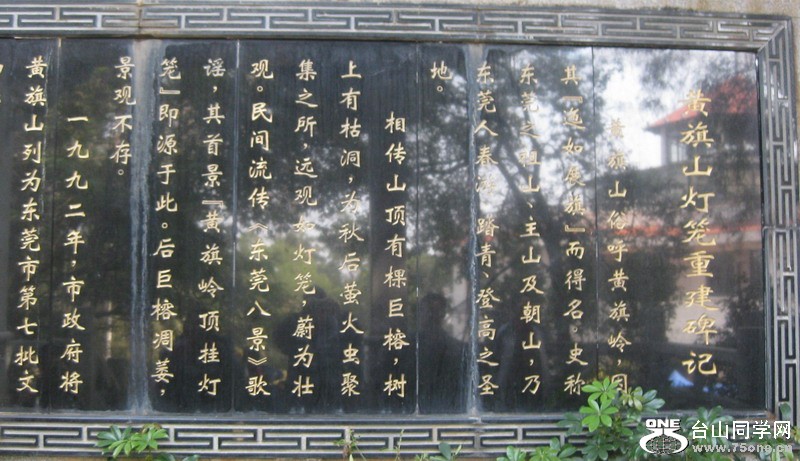 黄旗山灯笼重建碑记
黄旗山俗呼黄旗岭，因
其『迤如展旗』而得名。史称
东莞之祖山、主山及朝山，乃
东莞人春游踏青、登高之圣
地。
相传山顶有棵巨榕，树
上有枯洞，为秋后萤火虫聚
集之所，远观如灯笼，蔚为壮
观。民间流传《东莞八景》歌
谣，其首景『黄旗岭顶挂灯
笼』即源于此。后巨榕凋萎，
景观不存。
一九九二年，市政府将
黄旗山列为东莞市第七批文
ONE
75
台山同学网
www.75one.cn